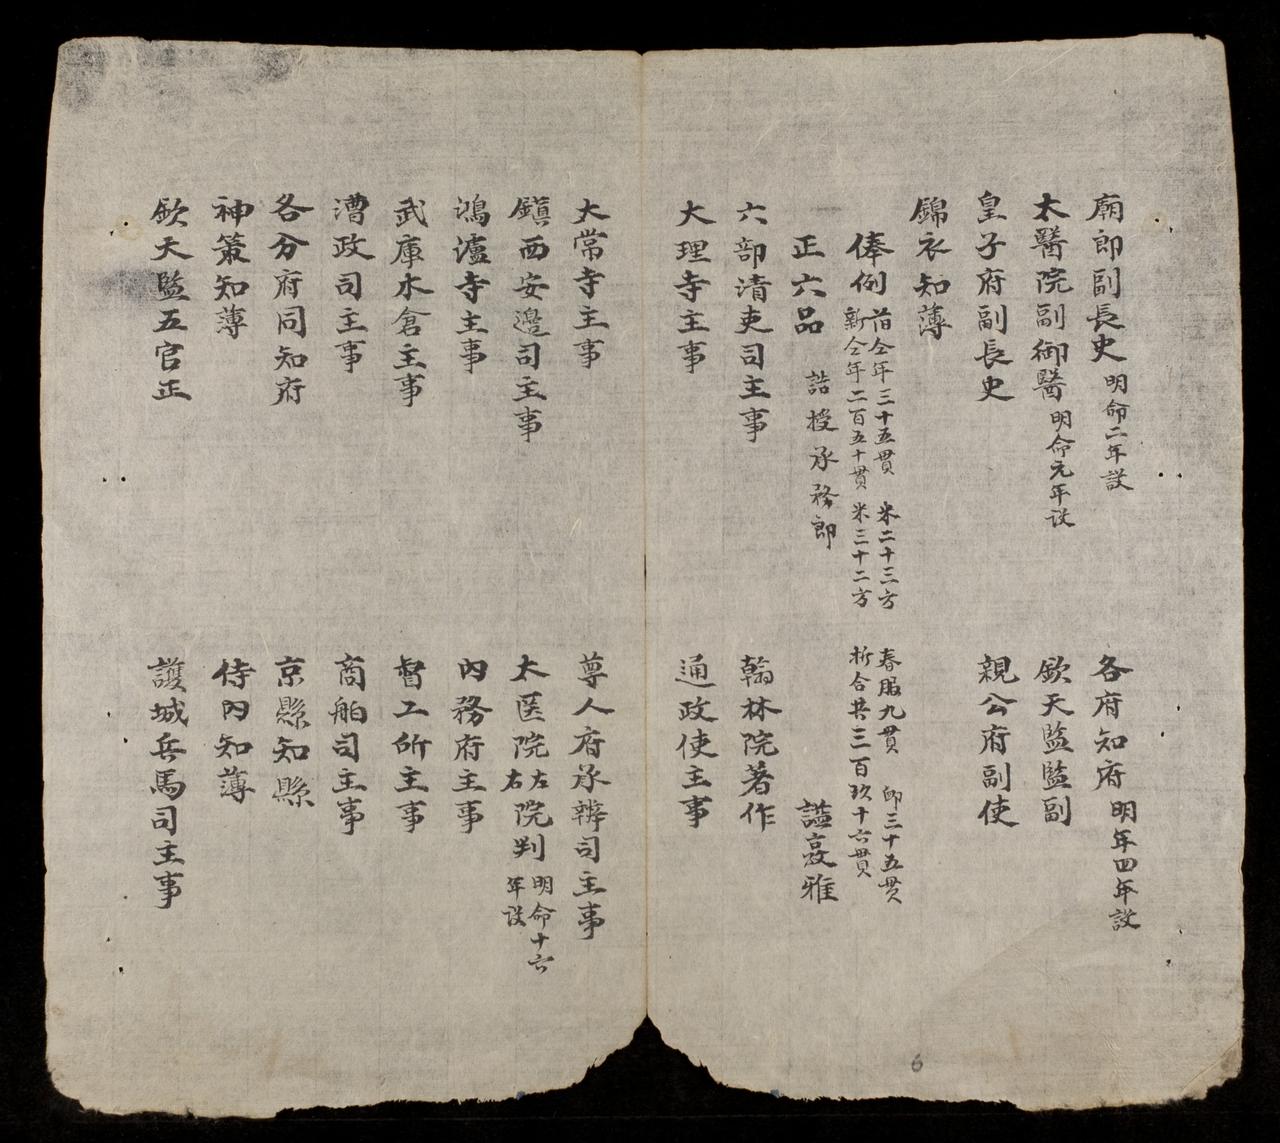 廟郎副長史 明命二年設 各府知府 明年四年設
太醫院副御醫 明命元年设 欽天監監副
皇子府副長史 親公府副使
錦衣知簿
俸例 旧仝年三十五貫 米二十三方 春服九貫 卹三十五貫
新仝年二百五十貫 米三十二方 折合共三百玖十六貫
正六品 誥授承務郎 謚敦雅
六部清吏司主事 翰林院著作
大理寺主事 通政使主事
大常寺主事 尊人府承辨司主事
鎮西安邊司主事 太医院左右院判 明命十六年设
鴻瀘寺主事 內務府主事
武庫水倉主事 督工所主事
漕政司主事 商舶司主事
各分府同知府 京縣知縣
神策知簿 侍內知簿
欽天監五官正 護城兵馬司主事
6